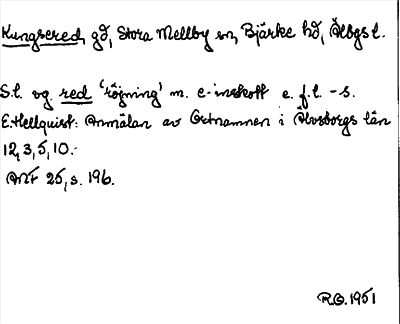 Kungsered, gd, Stora Mellby sn, Bjärke hd, Älvgs l.
S.l. og red 'röjning' m. e-inskott e. f.l. -s.
E. Hellquist: Anmälan av Ortnamnen i Älvsborgs län
12, 3, 5, 10.-
ANF 25, s. 196.
R.O. 1951